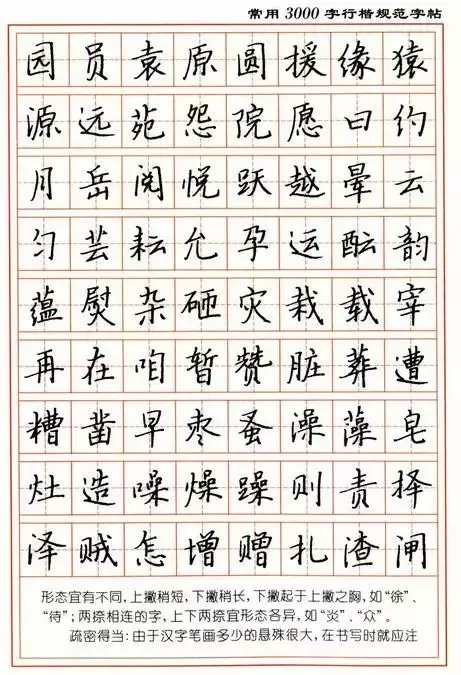 常用3000字行楷规范字帖
园员袁原圆援缘猿
源远苑怨院愿曰约
月岳阅悦跃越晕云
匀芸耘允孕运酝韵
蕴熨杂砸灾栽载宰
再在咱暂赞脏葬遭
糟凿早枣蚤澡藻皂
灶造噪燥躁则责择
泽贼怎增赠扎渣闸
形态宜有不同,上撇稍短,下撇稍长,下撇起于上撇之胸,如“徐”、
“待”;两捺相连的字,上下两捺宜形态各异,如“炎”、“众”。
疏密得当:由于汉字笔画多少的悬殊很大,在书写时就应注